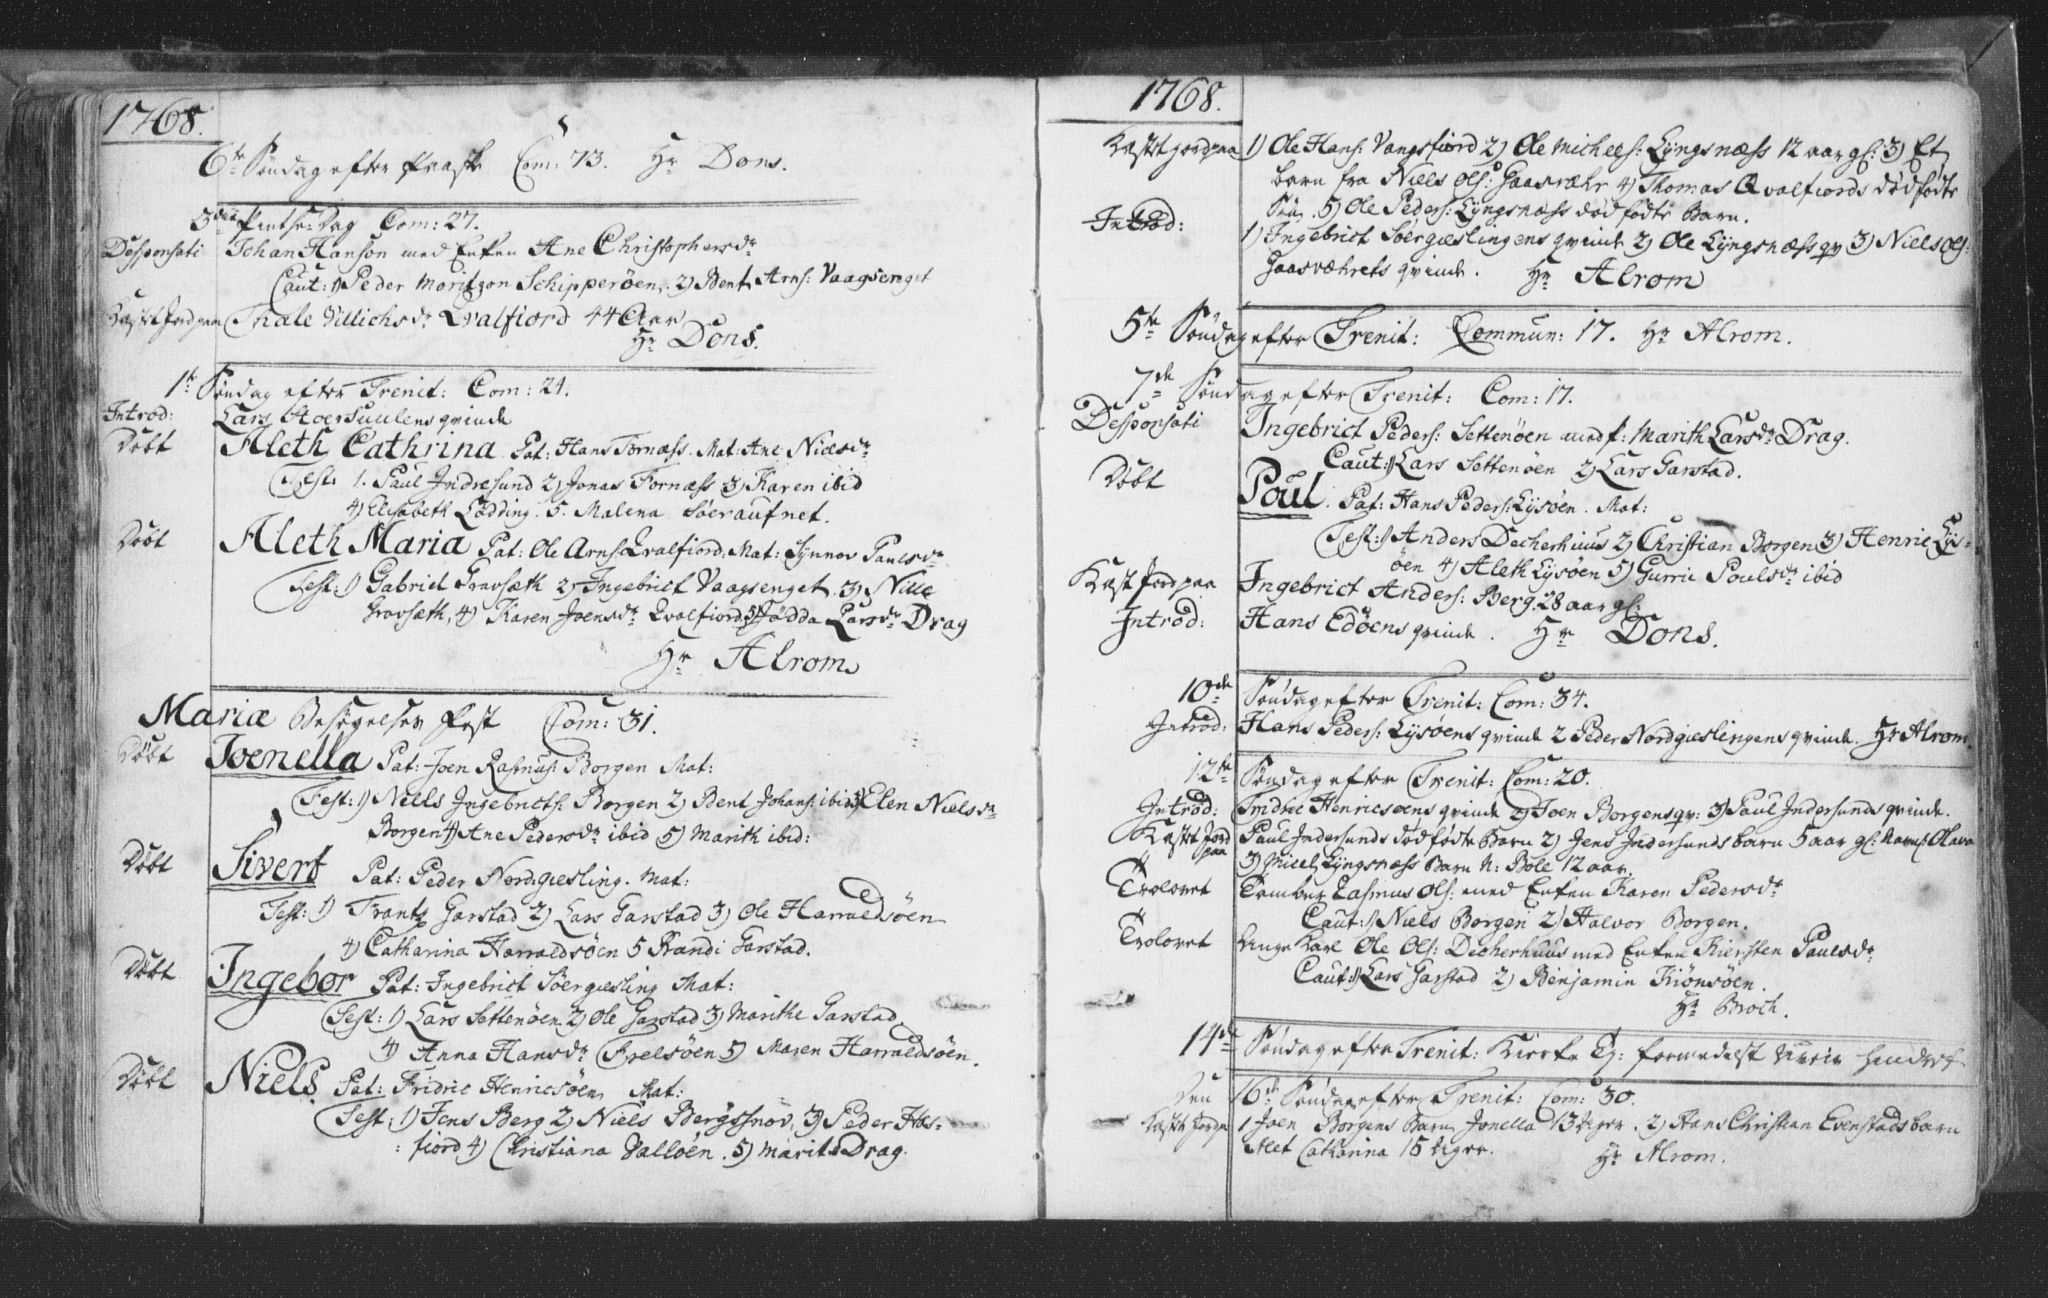 1768.
6te Søndag efter Paaske Com: 73. Hr Dons.
3die Pintse-Dag Com: 27.
Desponsati Johan Hanson med Enken Ane Christophersdr
Caut: 1) Peder Moritzon Schipperöen. 2) Bent Arns: Vaagsenget
Kastet Jord paa Thale Villichsdr Qvalfiord 44 Aar
Hr Dons.
1te Søndag efter Trenit: Com: 24.
Introd: Lars qvinde
Døbt Aleth Cathrina Pat: Hans Tornæss. Mat: Ane Nielsdr
Test: 1. Paul Indresund 2) Jonas Tornæss 3) Karen ibid
4) Elisabeth Lødding. 5. Malena
Døbt Aleth Maria Pat: Ole Arns: Qvalfiord. Mat: Synnov Paulsdr
Test: 1) Gabriel Gravsæth 2) Ingebrict Vaagsenget. 3) Nille
Gravsæth, 4) Karen Joensdr Qvalfiord, 5) Jødda Larsdr Drag
Hr Alrom
Mariæ Besøgelses Fest Com: 31.
Døbt Joenella Pat: Joen Rasmus: Borgen Mat:
Test: 1) Niels Ingebricts: Borgen 2) Bent Johans: ibid 3) Elen Nielsdr
Borgen 4) Ane Pedersdr ibid 5) Marith ibid:
Døbt Sivert Pat: Peder Nordgiesling. Mat:
Test: 1) Frantz Garstad 2) Lars Garstad 3) Ole Harraldsöen
4) Catharina Harraldsöen 5 Randi Garstad.
Døbt Ingebor Pat: Ingebrict Söergiesling Mat:
Test: 1) Lars Settenöen 2) Ole Garstad 3) Marithe Garstad
4) Anna Hansdr 5) Maren Harraldsöen.
Døbt Niels Pat: Fridric Henricsöen Mat:
Test: 1) Jens Berg 2) Niels Bergssnov, 3) Peder Hos-
:fiord 4) Christiana Valløen. 5) Marit Drag.
1768.
Kastet Jord paa 1) Ole Hans: Vangsfiord 2) Ole Michels: Lyngsnæss 12 aar gl: 3) Et
barn fra Niels Ols: Gaasværhr 4) Thomas Qvalfiords dödfödte
Sön. 5) Ole Peders: Lyngsnæss dödfödte Barn.
Introd: 1) Ingebrict Söergieslingens qvinde 2) Ole Lyngsnæss qv 3) Niels Ols:
Gaasværhrets qvinde. Hr Alrom
5te Søndag efter Trenit: Commun: 17. Hr Alrom.
7de Søndag efter Trenit: Com: 17.
Desponsati Ingebrict Peders: Settenöen med p: Marith Larsdr Drag.
Caut: 1) Lars Settenöen 2) Lars Garstad.
Døbt Poul. Pat: Hans Peders: Lysöen. Mat:
Test: 1) Anders Deckerhuus 2) Christian Borgen 3) Henric Lys-
öen 4) Aleth Lysöen 5) Gurrie Poulsdr ibid
Kast Jord paa Ingebrict Anders: Berg. 28 aar gl:
Introd: Hans Edöens qvinde. Hr Dons.
10de Søndag efter Trenit: Com: 34.
Introd: Hans Peders: Lysöens qvinde 2 Peder Nordgieslingens qvinde. Hr Alrom.
12te Søndag efter Trenit: Com: 20.
Introd: Fridric Henricsöens qvinde 2) Joen Borgens qv: 3) Paul Indersunds qvinde.
Kastet Jord paa Paul Indersunds dödfödte Barn 2) Jens Indersunds barn 5 aar gl: Olava
3) Micel Lyngsnæss Barn N: Bole 12 aar.
Trolovet Tambur Rasmus Ols: med Enken Karen Pedersdr
Caut: 1) Niels Borgen 2) Halvor Borgen.
Trolovet Unge Karl Ole Ols: Deckerhuus med Enken Kiersten Paulsdr
Caut: 1) Lars Garstad 2) Benjamin Kiönsöen.
Hr Broch.
14de Søndag efter Trenit: Kierke formedelst
Den 16de Søndag efter Trenit: Com: 30.
Kastet Jord paa 1 Joen Borgens Barn Jonella 13 Uger. 2) Hans Christian Evenstads barn
Alet Catharina 15 Uger. Hr Alrom.